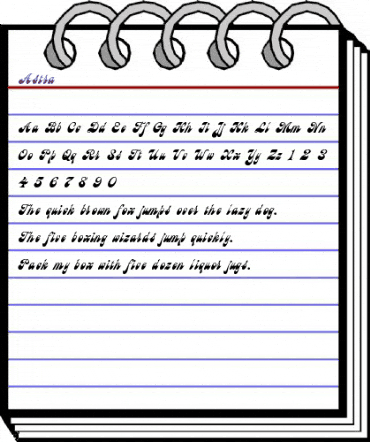 Adita
Aa Bb Cc Dd Ee Ff Gg Hh Ii Jj Kk Ll Mm Nn
Oo Pp Qq Rr Ss Tt Uu Vv Ww Xx Yy Zz 1 2 3
4 5 6 7 8 9 0
The quick brown fox jumps over the lazy dog.
The five boxing wizards jump quickly.
Pack my box with five dozen liquor jugs.